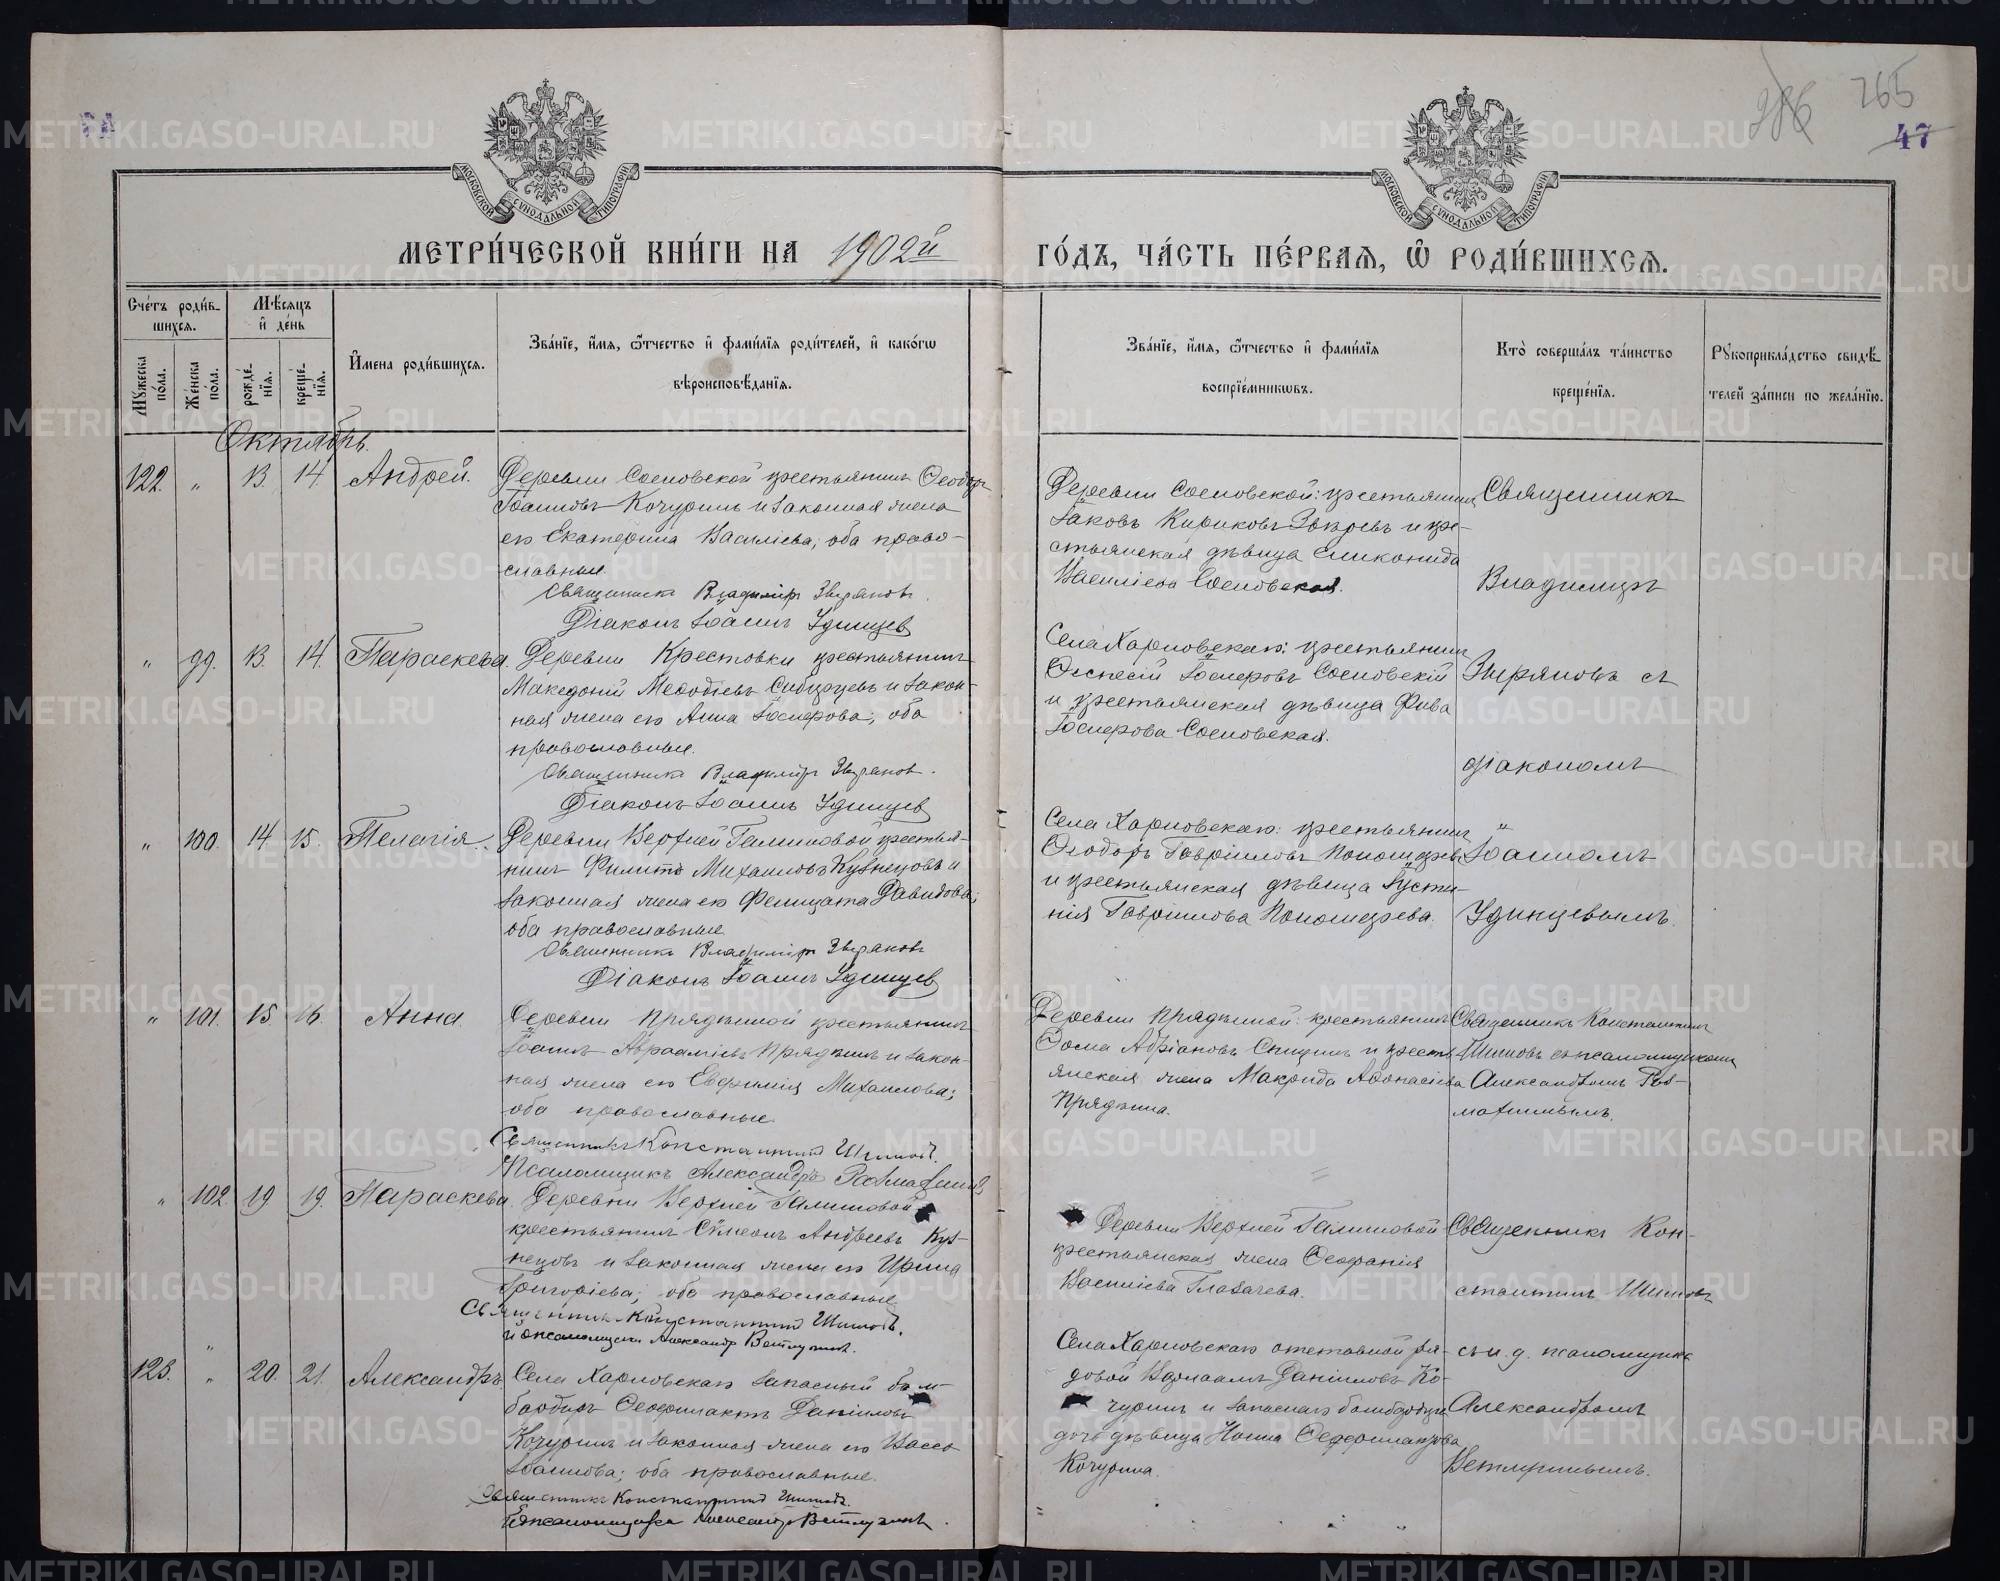 286 265
47
МОСКОВСКОЙ СУНОДАЛЬНОЙ ТИПОГРАФІИ
МОСКОВСКОЙ СУНОДАЛЬНОЙ ТИПОГРАФІИ
МЕТРИ́ЧЕСКОЙ КНИ́ГИ НА 1902й ГО́ДЪ, ЧА́СТЬ ПЕ́РВАЯ, Ѡ РОДИ́ВШИХСЯ.
Сче́тъ роди́в-
шихся.
Мѣ́сяцъ
и де́нь
Му́жеска по́ла.
Же́нска по́ла.
рожде́нїя.
креще́нїя.
И́мена роди́вшихся.
Зва́нїе, и́мя, ѻ́тчество и фами́лїя роди́телей, и како́гѡ
вѣроисповѣ́данїя.
Зва́нїе, и́мя, ѻ́тчество и фами́лїя
воспрїе́мникѡвъ.
Кто̀ соверша́лъ та́инство
креще́нїя.
Рукоприкла́дство свидѣ́-
телей за́писи по жела́нїю.
Октябрь.
122. „ 13. 14. Андрей.
Деревни Сосновской крестьянинъ Ѳеодоръ
Іоанновъ Кочуринъ и законная жена
его Екатерина Василіева; оба право-
славные.
Священникъ Владиміръ Зыряновъ.
Діаконъ Іоаннъ Удинцев
Деревни Сосновской: крестьянинъ
Іаковъ Кириковъ Звѣревъ и кре-
стьянская дѣвица Еликонида
Василіева Сосновская.
Священникъ
Владиміръ
„ 99. 13. 14. Параскева.
Деревни Крестовки крестьянинъ
Македоній Меѳодіевъ и закон-
ная жена его Анна Іосифова; оба
православные.
Священникъ Владиміръ Зырянов.
Діаконъ Іоаннъ Удинцев
Села Харловскаго: крестьянинъ
Іосифовъ Сосновскій
и крестьянская дѣвица Фива
Іосифова Сосновская.
Зыряновъ съ
діакономъ
„ 100. 14. 15. Пелагія.
Деревни Верхней Галишовой крестья-
нинъ Филиппъ Михаиловъ Кузнецовъ и
законная жена его Фелицата Давидова;
оба православные.
Священникъ Владиміръ Зырянов
Діаконъ Іоаннъ Удинцев
Села Харловскаго: крестьянинъ
Ѳеодоръ Гавріиловъ Пономаревъ
и крестьянская дѣвица Іусти-
нія Гавріилова Пономарева.
„
Іоанномъ
Удинцевымъ.
„ 101. 15 16. Анна.
Деревни Прядѣиной крестьянинъ
Іоаннъ Авраамовъ Прядѣинъ и закон-
ная жена его Евфимія Михаилова;
оба православные.
Священникъ Константинъ Шишов.
Псаломщикъ Александръ
Деревни Прядѣиной: крестьянинъ
Ѳома Адріановъ Спицинъ и кресть-
янская жена Макрида Аѳонасіева
Прядѣина.
Священникъ Константинъ
Шишовъ съ псаломщикомъ
Александромъ
„ 102. 19 19. Параскева.
Деревни Верхней Галишовой
крестьянинъ Сѵмеонъ Андреевъ Куз-
нецовъ и законная жена его Ирина
Григоріева; оба православные
Священникъ Константинъ Шишовъ.
Деревни Верхней Галишовой
крестьянская жена Ѳеофанія
Василіева Глазачева.
Священникъ Кон-
стантинъ Шишовъ
123. „ 20. 21. Александръ.
Села Харловскаго запасный бом-
бардиръ Ѳеофилактъ Даніиловъ
Кочуринъ и законная жена его Васса
Іоаннова; оба православные.
Священникъ Константинъ Шишовъ.
Села Харловскаго отставной ря-
довой Варлаамъ Даніиловъ Ко-
чуринъ и запаснаго бомбардира
дочь дѣвица Нонна Ѳеофилактова
Кочурина.
съ и. д. псаломщика
Александромъ
Ветлугинымъ.